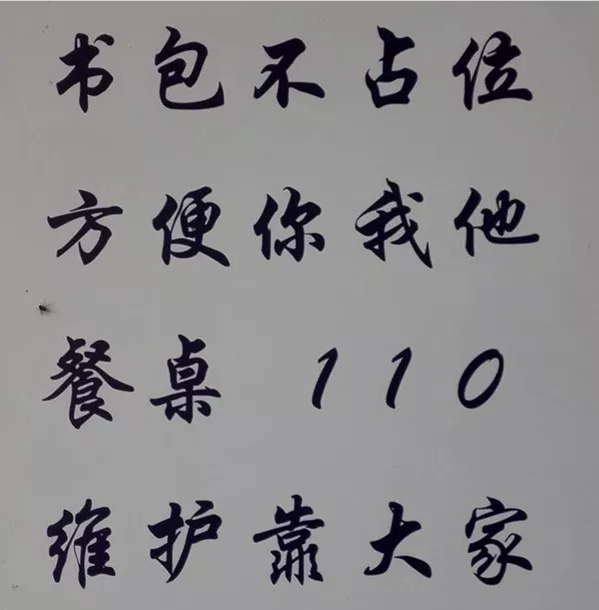 书包不占位
方便你我他
餐桌 110
维护靠大家